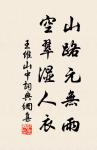 山路元無雨
空翠湿人衣
王維山中詞典網集